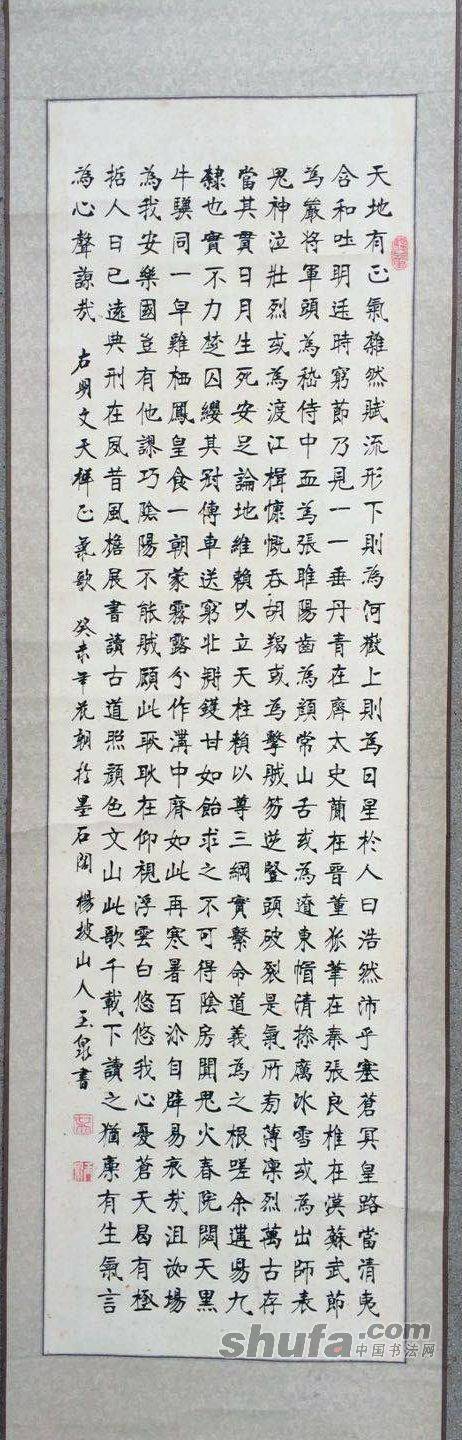 天地有正氣雜然賦流形下則為河嶽上則為日星於人曰浩然沛乎塞蒼冥皇路當清夷
含和吐明廷時窮節乃見一一垂丹青在齊太史簡在晉董狐筆在秦張良椎在漢蘇武節
為嚴將軍頭為嵇侍中血為張睢陽齒為顏常山舌或為遼東帽清操厲冰雪或為出師表
鬼神泣壯烈或為渡江楫慷慨吞胡羯或為擊賊笏逆豎頭破裂是氣所旁薄凜烈萬古存
當其貫日月生死安足論地維賴以立天柱賴以尊三綱實繫命道義為之根嗟余遘陽九
隸也實不力楚囚纓其冠傳車送窮北鼎鑊甘如飴求之不可得陰房闃鬼火春院閟天黑
牛驥同一皁雞栖鳳皇食一朝蒙霧露分作溝中瘠如此再寒暑百沴自辟易哀哉沮洳場
為我安樂國豈有他謬巧陰陽不能賊顧此耿耿在仰視浮雲白悠悠我心憂蒼天曷有極
哲人日已遠典刑在夙昔風檐展書讀古道照顏色文山此歌千載下讀之猶廩有生氣言
為心聲諒哉 右明文天祥正氣歌 癸未年花朝於墨石閣 楊坡山人玉泉書
shufa.com
中国书法网